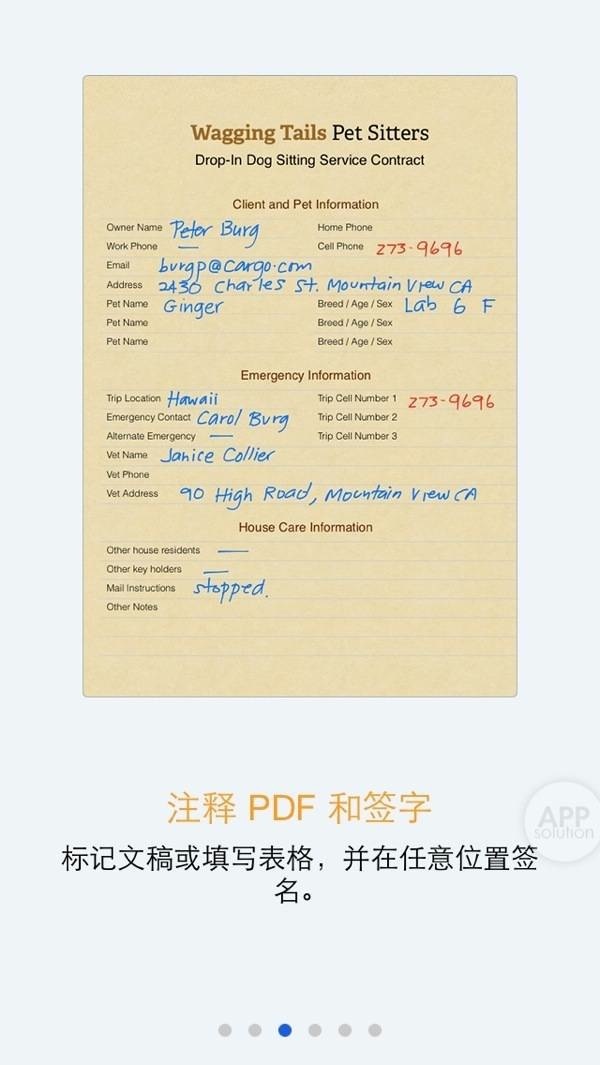 Wagging Tails Pet Sitters
Drop-In Dog Sitting Service Contract
Client and Pet Information
Owner Name Peter Burg Home Phone
Work Phone — Cell Phone 273-9696
Email burgp@cargo.com
Address 2430 Charles St. Mountain View CA
Pet Name Ginger Breed / Age / Sex Lab 6 F
Pet Name Breed / Age / Sex
Pet Name Breed / Age / Sex
Emergency Information
Trip Location Hawaii Trip Cell Number 1 273-9696
Emergency Contact Carol Burg Trip Cell Number 2
Alternate Emergency — Trip Cell Number 3
Vet Name Janice Collier
Vet Phone
Vet Address 90 High Road, Mountain View CA
House Care Information
Other house residents —
Other key holders —
Mail Instructions stopped.
Other Notes
注释 PDF 和签字
APP
solution
标记文稿或填写表格，并在任意位置签
名。